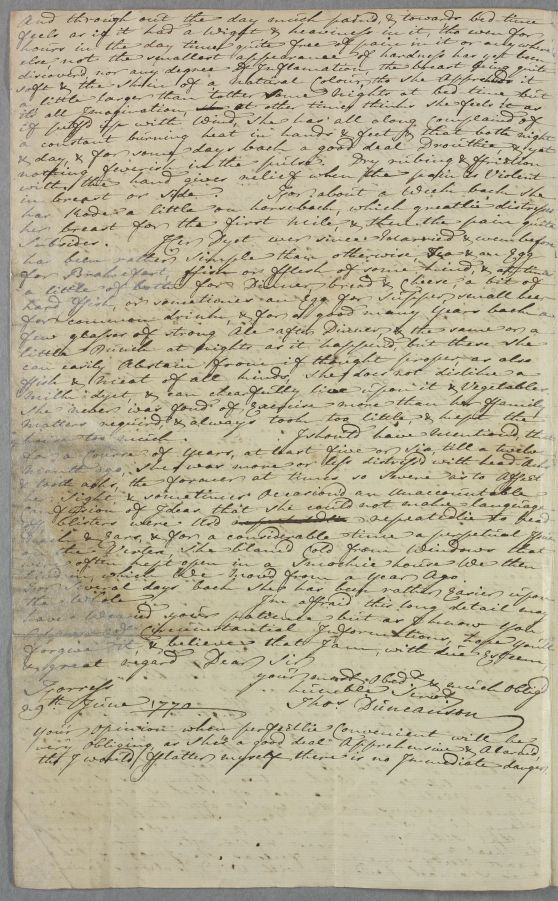 And through out the day much pain'd & towards bed time
feels as if it had a Wight & heaviness in it, tho even for
hours in the day time quite free of pain in it or any where
else, not the smallest appearance of hardness has yet been
discovered nor any degree of Inflamation, the breast being quite
soft & the Skin of a natural Colour, tho she Apprehends it
a little larger than tother some nights at bed time but
its all Imagination, at other times thinks she feels it as
if puff'd up with Wind, she has all along complaind of
a constant burning heat in hands & feet & that both night
& day, & for some days back a good deal Drouthie, & yet
nothing feverish in the pulse. Dry rubing & friction
with the hand gives relieff when the pain is Violent
in breast or Side. For about a Week back she
has Rode a little on horseback, which greatlie distresses
her breast for the first Mile, & then the pain quite
Subsides. Her Dyet ever since I married & even before
has been rather Simple than otherwise, Tea & an Egg
for Breakfast, ffish or fflesh of some kind, & oftimes
a little of both for Dinner, bread & Cheese, a bit of
hard ffish, or sometimes an Egg for Supper, small beer
for common drink, & for a good many Years back a
few glasses of strong Ale after Dinner & the same or a
little Punch at nights as it happend, but these she
can easily Abstain from if thought proper, as also
ffish & Meat of all kinds, She does not dislike a
Milk dyet, & can chearfully live upon it & Vegetables
She never was fond of Exercise more than her ffamily
matters required & always took too little, & kept the
house too much. I should have mentiond, that
for a course of Years, at least five or six, till a twelve
Moanth ago, She was more or less distress'd with head Ache
& tooth achs, the former at times so severe as to Affect
her Sight, & sometimes Occasiond an Unaccountable
confusion of Ideas that she could not make language
off, blisters were Used repeatedlie to head
& Ears, & for a considerable time a perpetual
the Winter, She blam'd Cold from Windows that
were often kept open in a Smoakie house We then
lived in, which We Moved from a Year Ago.
For several days back She has been rather Easier upon
the Whole I'm affraid this long detail may
have Wearied your patience, but as I know you
Circumstantial Informations, hope you'll
forgive it, & believe that I am, with due Esteem
& great regard Dear Sir
your most Obedt. & much Oblig'd
humble Servt.
Forress Thos. Duncanson
29th June 1770
Your Opinion when perfectlie Convenient will be
very Obliging, as She's a good deal Apprehensive & Alarm'd,
tho I would fflatter myself there is no Immediate danger